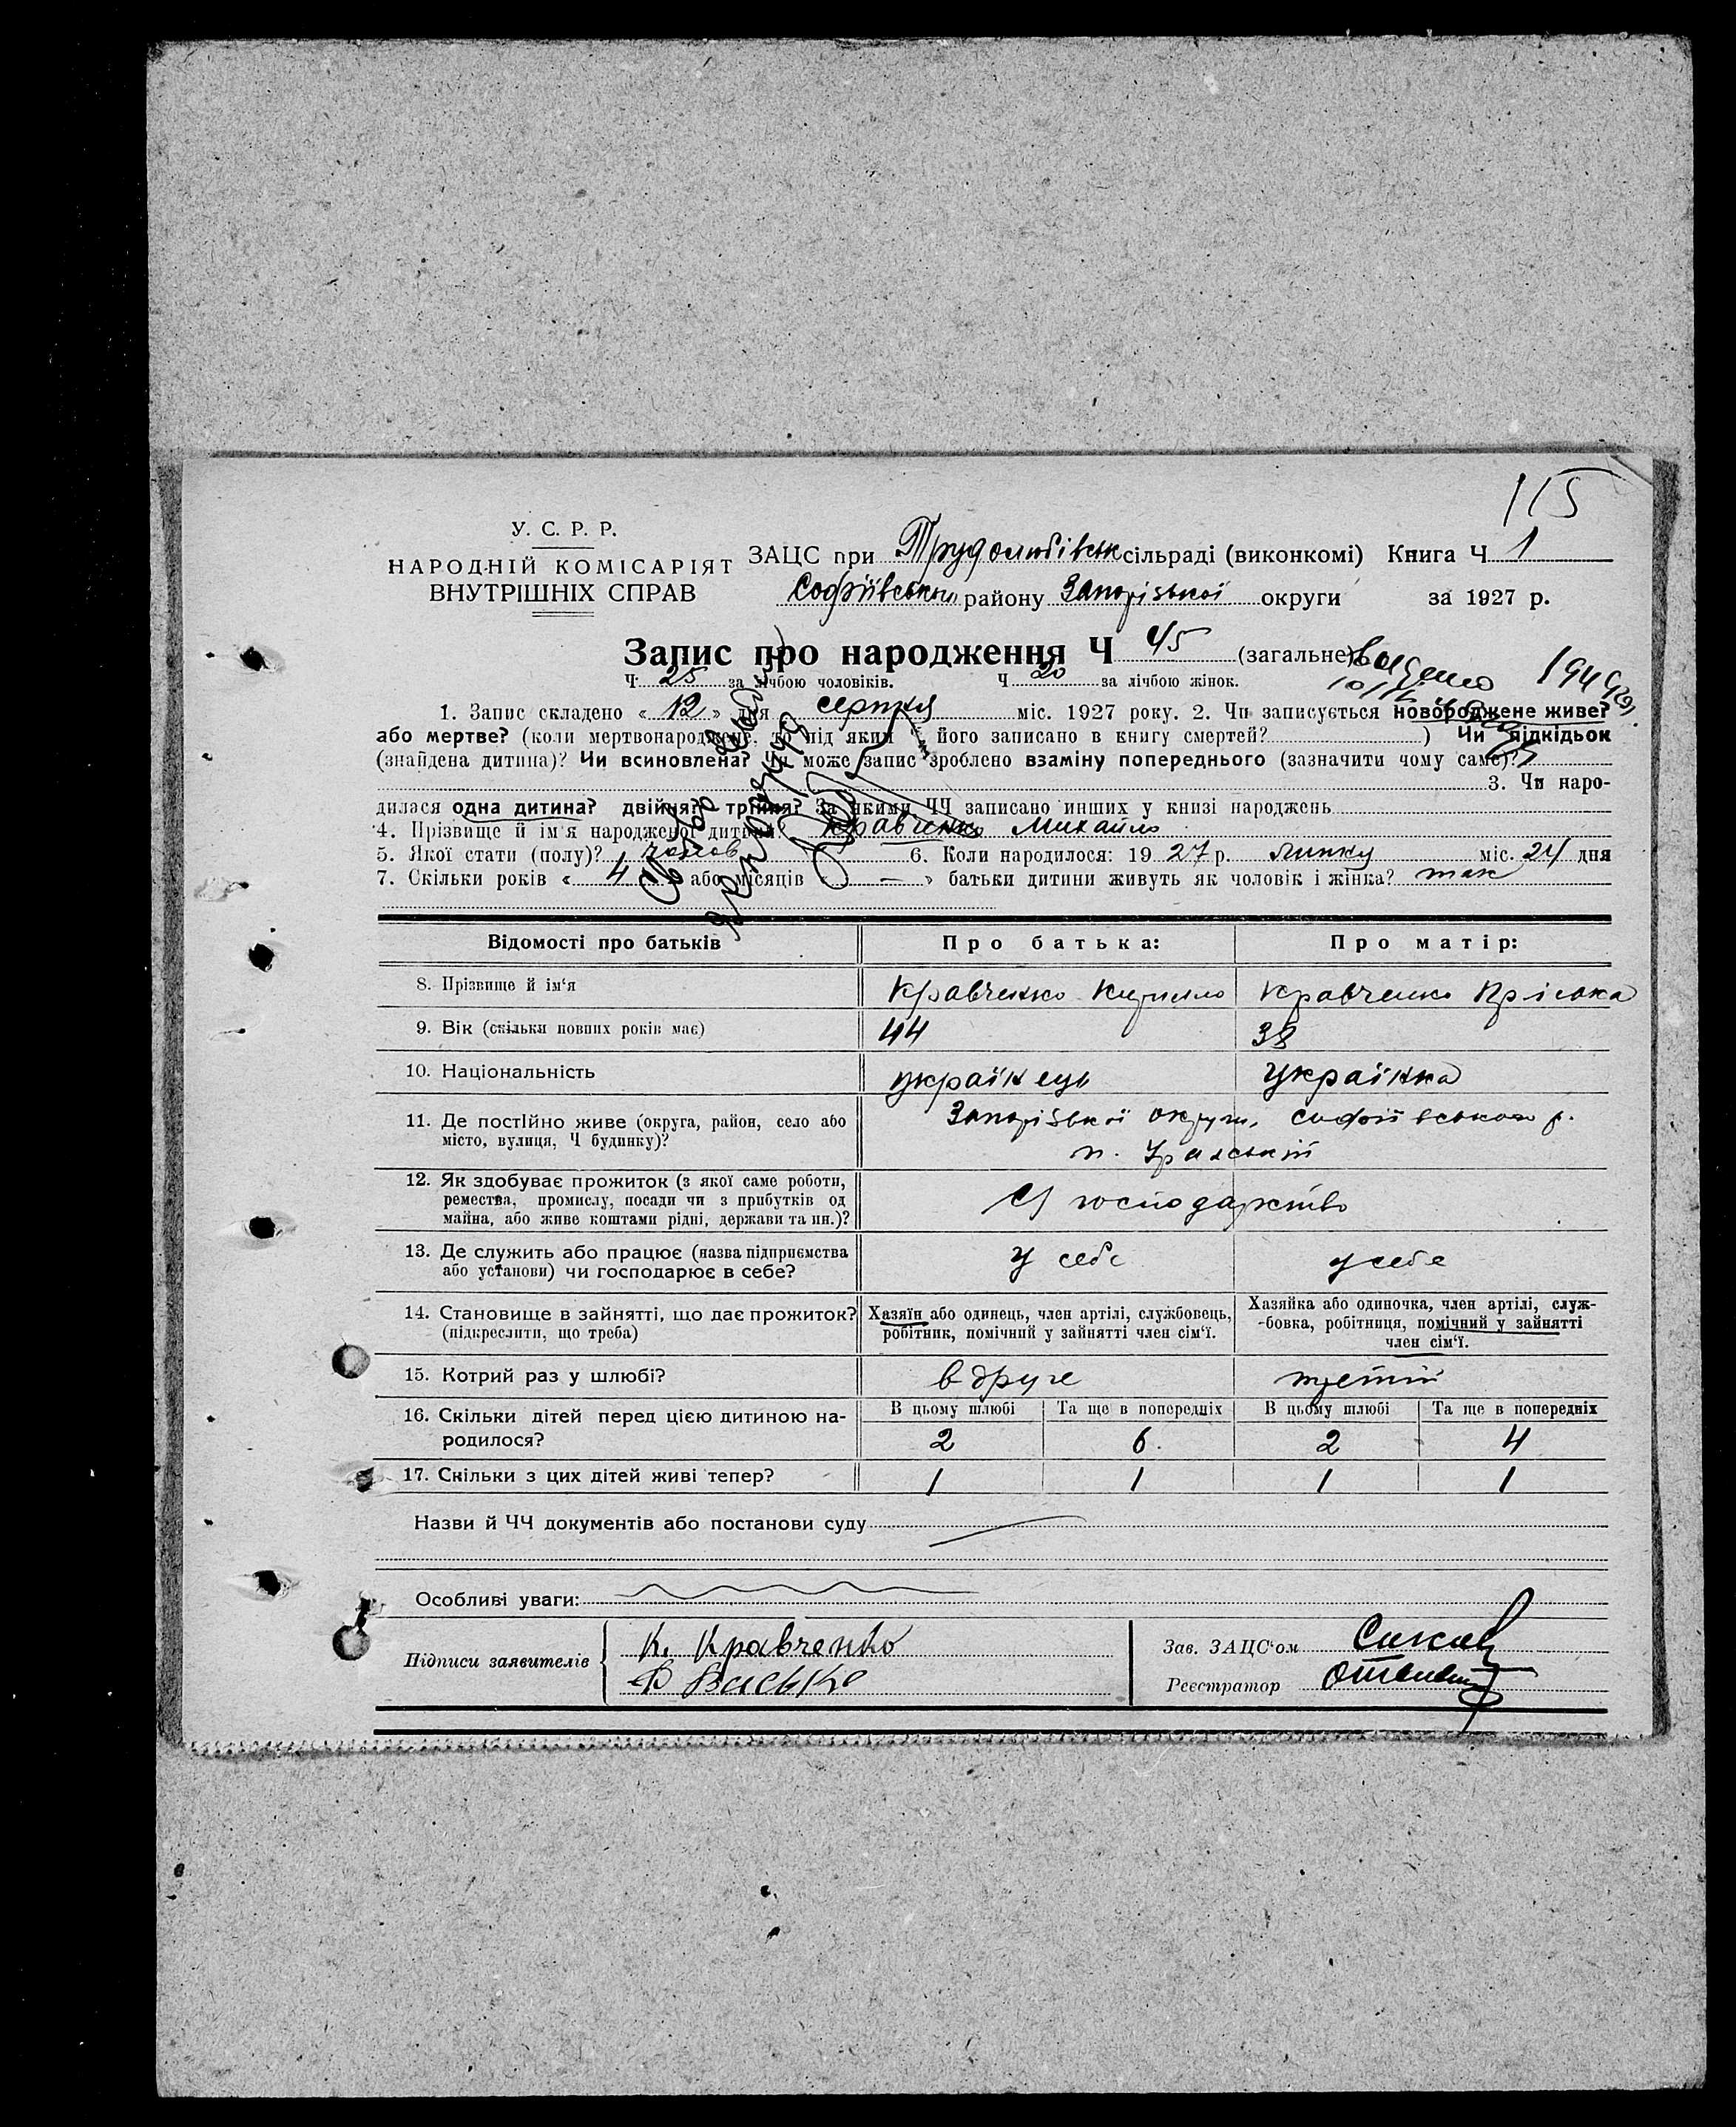 115
У. С. Р. Р.
НАРОДНІЙ КОМІСАРІЯТ
ВНУТРІШНІХ СПРАВ
ЗАЦС при Трудолюбівськ сільраді (виконкомі) Книга Ч 1
Софіївського району Запорізької округи за 1927 р.
Запис про народження Ч 45 (загальне)
Ч 25 за лічбою чоловіків. Ч 20 за лічбою жінок.
1. Запис складено « 12 » дня серпня міс. 1927 року. 2. Чи записується новороджене живе?
або мертве? (коли мертвонароджене, то під яким Ч його записано в книгу смертей? ) Чи підкідьок
(знайдена дитина)? Чи всиновлена? Чи може запис зроблено взаміну попереднього (зазначити чому саме)?
3. Чи наро-
дилася одна дитина? двійня? трійня? За якими ЧЧ записано инших у книзі народжень
4. Прізвище й ім'я народженої дитини? Кравченко Михайло
5. Якої стати (полу)? чолов 6. Коли народилося: 1927 р. липня міс. 24 дня
7. Скільки років « 4 » або місяців « — » батьки дитини живуть як чоловік і жінка? так
Відомості про батьків Про батька: Про матір:
8. Прізвище й ім'я Кравченко Кирило Кравченко Пріська
9. Вік (скільки повних років має) 44 38
10. Національність українець українка
11. Де постійно живе (округа, район, село або
місто, вулиця, Ч будинку)?
Запорізької округи, Софіївського р.
12. Як здобуває прожиток (з якої саме роботи,
ремества, промислу, посади чи з прибутків од
майна, або живе коштами рідні, держави та ин.)?
С/господарство
13. Де служить або працює (назва підприємства
або установи) чи господарює в себе?
у себе у себе
14. Становище в зайнятті, що дає прожиток?
(підкреслити, що треба)
Хазяїн або одинець, член артілі, службовець,
робітник, помічний у зайнятті член сім'ї.
Хазяйка або одиночка, член артілі, служ-
-бовка, робітниця, помічний у зайнятті
член сім'ї.
15. Котрий раз у шлюбі? вдруге третій
16. Скільки дітей перед цією дитиною на-
родилося?
В цьому шлюбі Та ще в попередніх В цьому шлюбі Та ще в попередніх
2 6. 2 4
17. Скільки з цих дітей живі тепер? 1 1 1 1
Назви й ЧЧ документів або постанови суду
Особливі уваги:
Підписи заявителів К. Кравченко
Зав. ЗАЦС'ом
Реєстратор